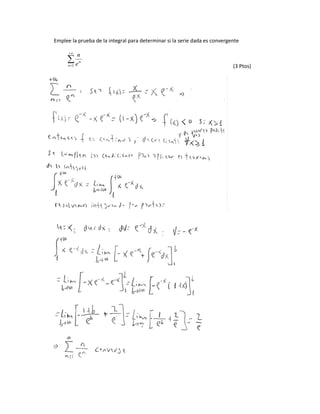 Emplee la prueba de la integral para determinar si la serie dada es convergente
∑_{n=1}^{+∞} n/e^n
(3 Ptos)
∑_{n=1}^{+∞} n/e^n : Sea f(x) = x/e^x = x e^{-x} ⇒
f'(x) = e^{-x} - x e^{-x} = (1-x) e^{-x} ⇒ f'(x) < 0 si x ≥ 1
Entonces f es continua, decreciente y de valores positivos ∀x≥1
Se cumplen las condiciones para aplicar el teorema
de la integral
∫_1^{+∞} x e^{-x} dx = Lim_{b→+∞} ∫_1^{+∞} x e^{-x} dx
resolvemos integrando por partes:
u = x; du = dx; dv = e^{-x} dx; V = -e^{-x}
∫_1^{+∞} x e^{-x} dx = Lim_{b→+∞} [-x e^{-x} + ∫ e^{-x} dx]_1^b
= Lim_{b→+∞} [-x e^{-x} - e^{-x}]_1^b = Lim_{b→+∞} [-e^{-x} (1+x)]_1^b
= Lim_{b→+∞} [-(1+b)/e^b + 2/e] = Lim_{b→+∞} [-1/e^b + 2/e] = 2/e
∑_{n=1}^{∞} n/e^n converge